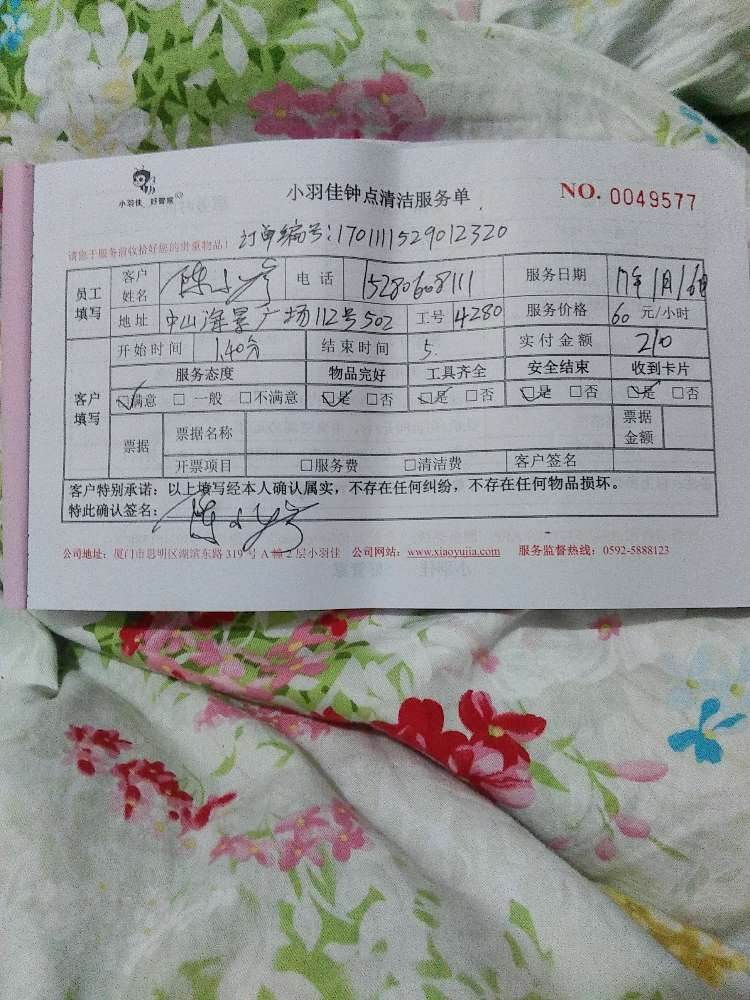 小羽佳 好管家
小羽佳钟点清洁服务单
NO. 0049577
请您于服务前收拾好您的贵重物品！
订单编号:1701111529012320
员工填写 客户姓名 陈 电话 15280608111 服务日期 17年1月16日
地址 中山海景广场112号502 工号 4280 服务价格 60 元/小时
开始时间 1.40分 结束时间 5. 实付金额 210
客户填写 服务态度 物品完好 工具齐全 安全结束 收到卡片
☑满意 □一般 □不满意 ☑是 □否 ☑是 □否 ☑是 □否 ☑是 □否
票据 票据名称 票据金额
开票项目 □服务费 □清洁费 客户签名
客户特别承诺：以上填写经本人确认属实，不存在任何纠纷，不存在任何物品损坏。
特此确认签名： 陈
公司地址：厦门市思明区湖滨东路 319 号 A 幢 2 层小羽佳 公司网站：www.xiaoyujia.com 服务监督热线：0592-5888123